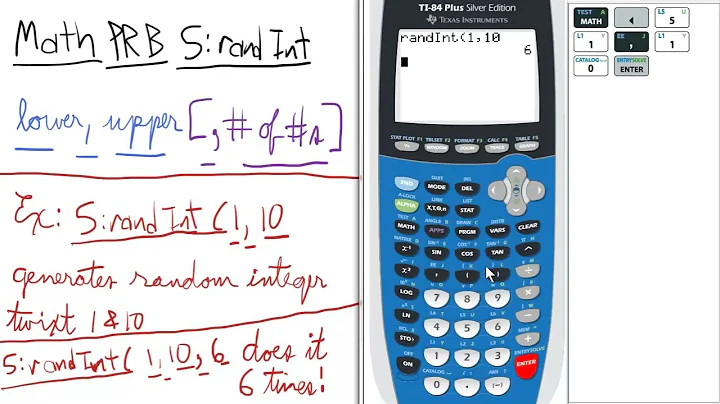 Math PRB 5:randInt
lower, upper [, # of #s]
Ex: 5:randInt(1, 10
generates random integer
twixt 1 & 10
5:randInt( 1, 10, 6 does it
6 times!
TI-84 Plus Silver Edition
TEXAS INSTRUMENTS
randInt(1,10
6
STAT PLOT F1 TBLSET F2 FORMAT F3 CALC F4 TABLE F5
Y= WINDOW ZOOM TRACE GRAPH
QUIT INS
2ND MODE DEL
A-LOCK LINK LIST
ALPHA X,T,Θ,n STAT
TEST A ANGLE B DRAW C DISTR
MATH APPS PRGM VARS CLEAR
MATRIX D SIN⁻¹ E COS⁻¹ F TAN⁻¹ G π H
x⁻¹ SIN COS TAN ^
x² , ( ) ÷
LOG 7 8 9 ×
LN 4 5 6 −
RCL X
STO▸ 1 2 3 +
OFF CATALOG ENTRY SOLVE
ON 0 . (-) ENTER
TEST A
MATH
L5 U
5
L1 Y
1
EE J
,
L1 Y
1
CATALOG
0
ENTRY SOLVE
ENTER